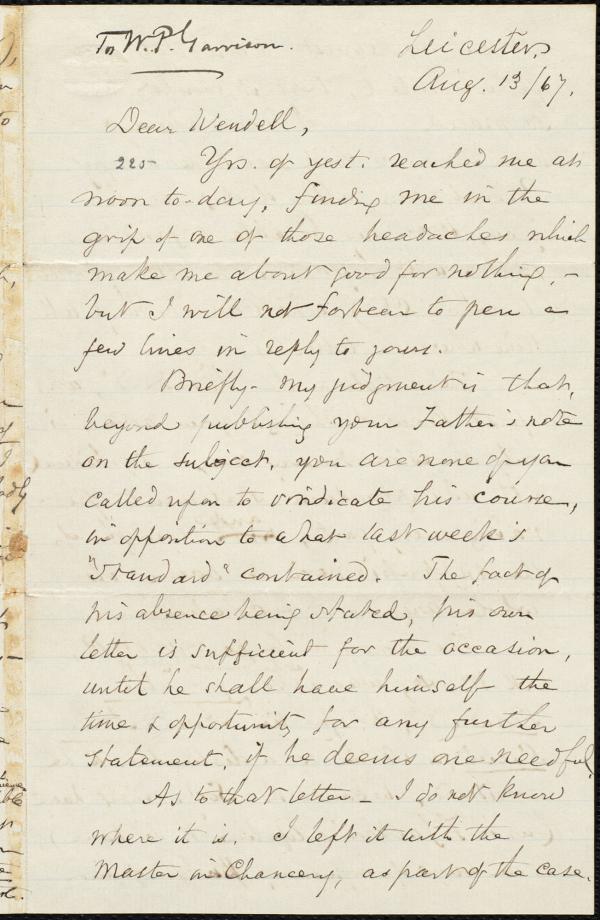 To W. P. Garrison.
Leicester,
Aug. 13/67.
Dear Wendell,
225 Yrs. of yest. reached me at
noon to-day, finding me in the
grip of one of those headaches which
make me about good for nothing, -
but I will not forbear to pen a
few lines in reply to yours.
Briefly - my judgment is that,
beyond publishing your Father's note
on the subject, you are none of you
called upon to vindicate his course,
in opposition to what last week's
"Standard" contained. The fact of
his absence being stated, his own
letter is sufficient for the occasion,
until he shall have himself the
time & opportunity for any further
statement, if he deems one needful.
As to that letter - I do not know
where it is. I left it with the
Master in Chancery, as part of the case.